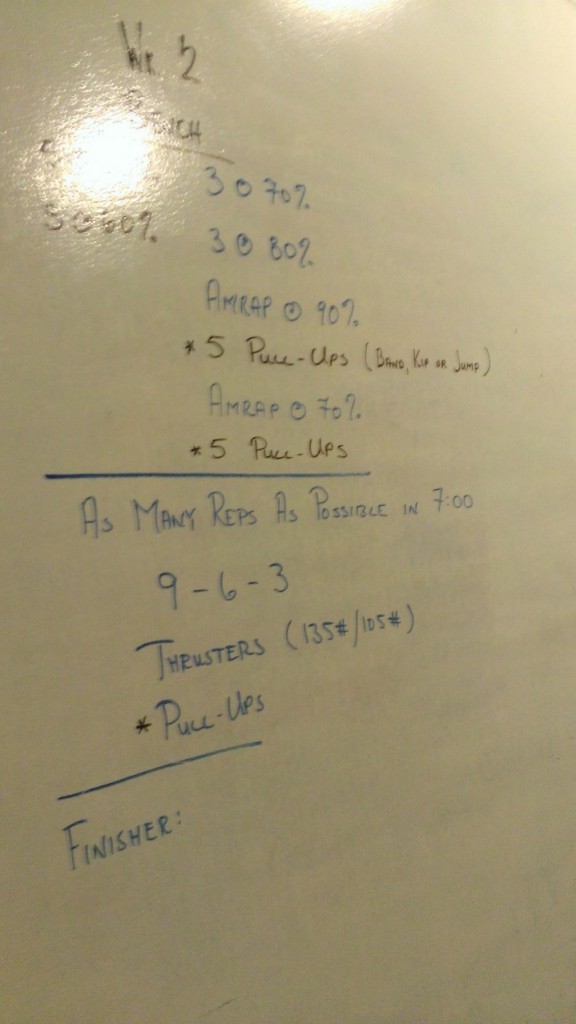 Wk 2
3 @ 70%
5 @ 60%
3 @ 80%
AMRAP @ 90%
* 5 PULL-UPS (BAND, KIP OR JUMP)
AMRAP @ 70%
* 5 PULL-UPS
AS MANY REPS AS POSSIBLE IN 7:00
9-6-3
THRUSTERS (135#/105#)
* PULL-UPS
FINISHER: